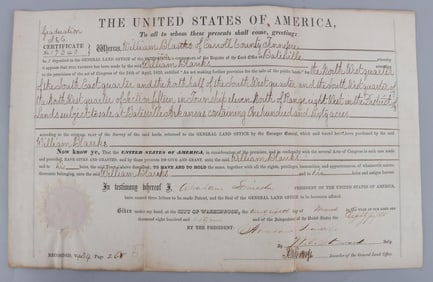 THE UNITED STATES OF AMERICA,
To all to whom these presents shall come, greeting:
Graduation
CERTIFICATE
Whereas, William of Carroll County, Tennessee
deposited in the GENERAL LAND OFFICE of the a certificate of the Register of the Land Office at Batesville
it appears that full payment has been made by the said William according
to the provisions of the act of Congress of the 24th of April, 1820, entitled "An act making further provision for the sale of the public lands," for the North West quarter
of the South East quarter and the North half of the South West quarter and the South West quarter of
the North West quarter of Section fifteen in Township eleven North of Range eight West in the District of
Lands subject to sale at Batesville Arkansas containing One hundred and sixty acres
according to the official plat of the Survey of the said lands, returned to the GENERAL LAND OFFICE by the Surveyor General, which said tract has been purchased by the said
William
Now know ye, That the UNITED STATES OF AMERICA, in consideration of the premises, and in conformity with the several acts of Congress in such case made
and provided, HAVE GIVEN AND GRANTED, and by these presents DO GIVE AND GRANT, unto the said William
and to his heirs, the said Tract above described; TO HAVE AND TO HOLD the same, together with all the rights, privileges, immunities, and appurtenances, of whatsoever nature,
thereunto belonging, unto the said William and to his heirs and assigns forever.
In testimony whereof I, Abraham Lincoln PRESIDENT OF THE UNITED STATES OF AMERICA,
have caused these letters to be made Patent, and the Seal of the GENERAL LAND OFFICE to be hereunto affixed.
Given under my hand at the CITY OF WASHINGTON, the day of IN THE YEAR OF OUR LORD one
thousand eight hundred and and of the Independence of the United States the
BY THE PRESIDENT: Abraham Lincoln
By Sec'y.
Recorder of the General Land Office.
RECORDED, Vol. Page